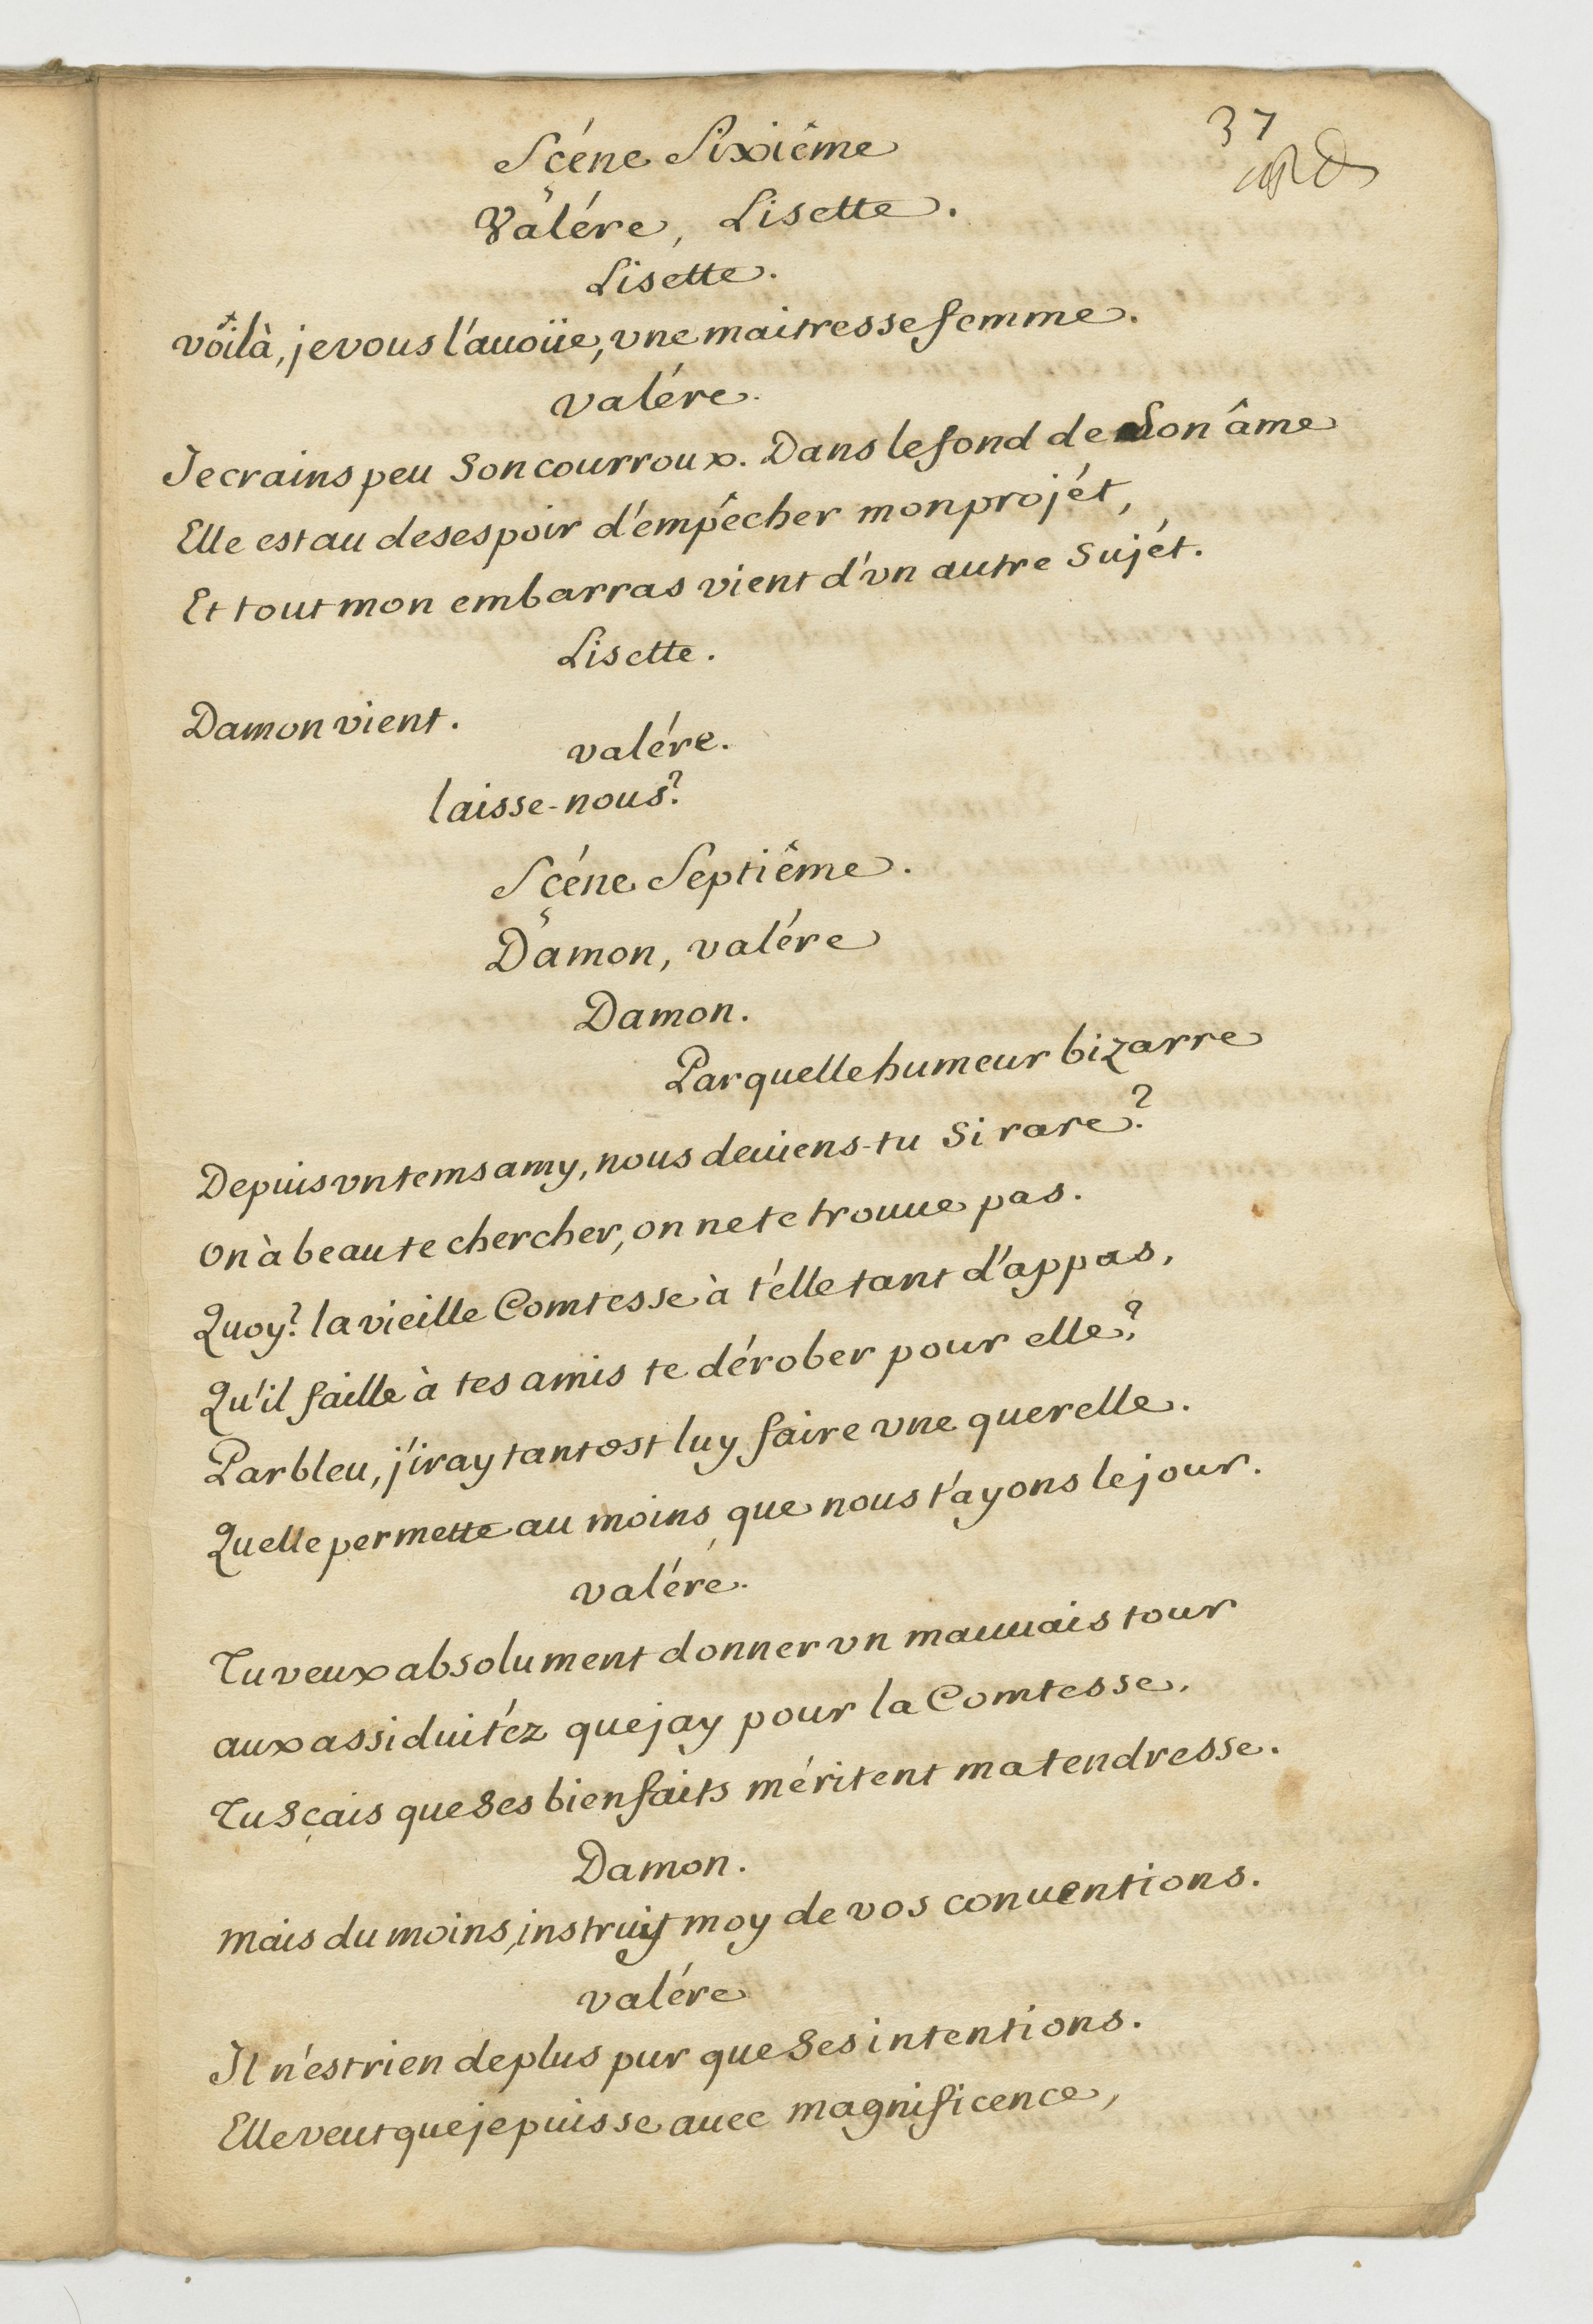 37
Scéne Sixiême
Valére, Lisette.
Lisette.
voilà, je vous l'auoüe, vne maitresse femme.
valére.
Je crains peu Son courroux. Dans le fond de Son âme
Elle est au desespoir d'empêcher mon projét,
Et tout mon embarras vient d'vn autre Sujét.
Lisette.
Damon vient.
valére.
laisse-nous?
Scéne Septiême.
Damon, valére
Damon.
Par quelle humeur bizarre
Depuis vn tems amy, nous deuiens-tu Si rare?
On à beau te chercher, on ne te trouue pas.
Quoy? la vieille Comtesse à t'elle tant d'appas,
Qu'il faille à tes amis te dérober pour elle?
Parbleu, j'iray tantost luy faire vne querelle.
Quelle permette au moins que nous t'ayons le jour.
valére.
Tu veux absolument donner vn mauuais tour
aux assiduitéz que jay pour la Comtesse.
Tu Sçais que Ses bienfaits méritent ma tendresse.
Damon.
Mais du moins, instruis moy de vos conuentions.
valére
Il n'est rien de plus pur que Ses intentions.
Elle veut que je puisse auec magnificence,